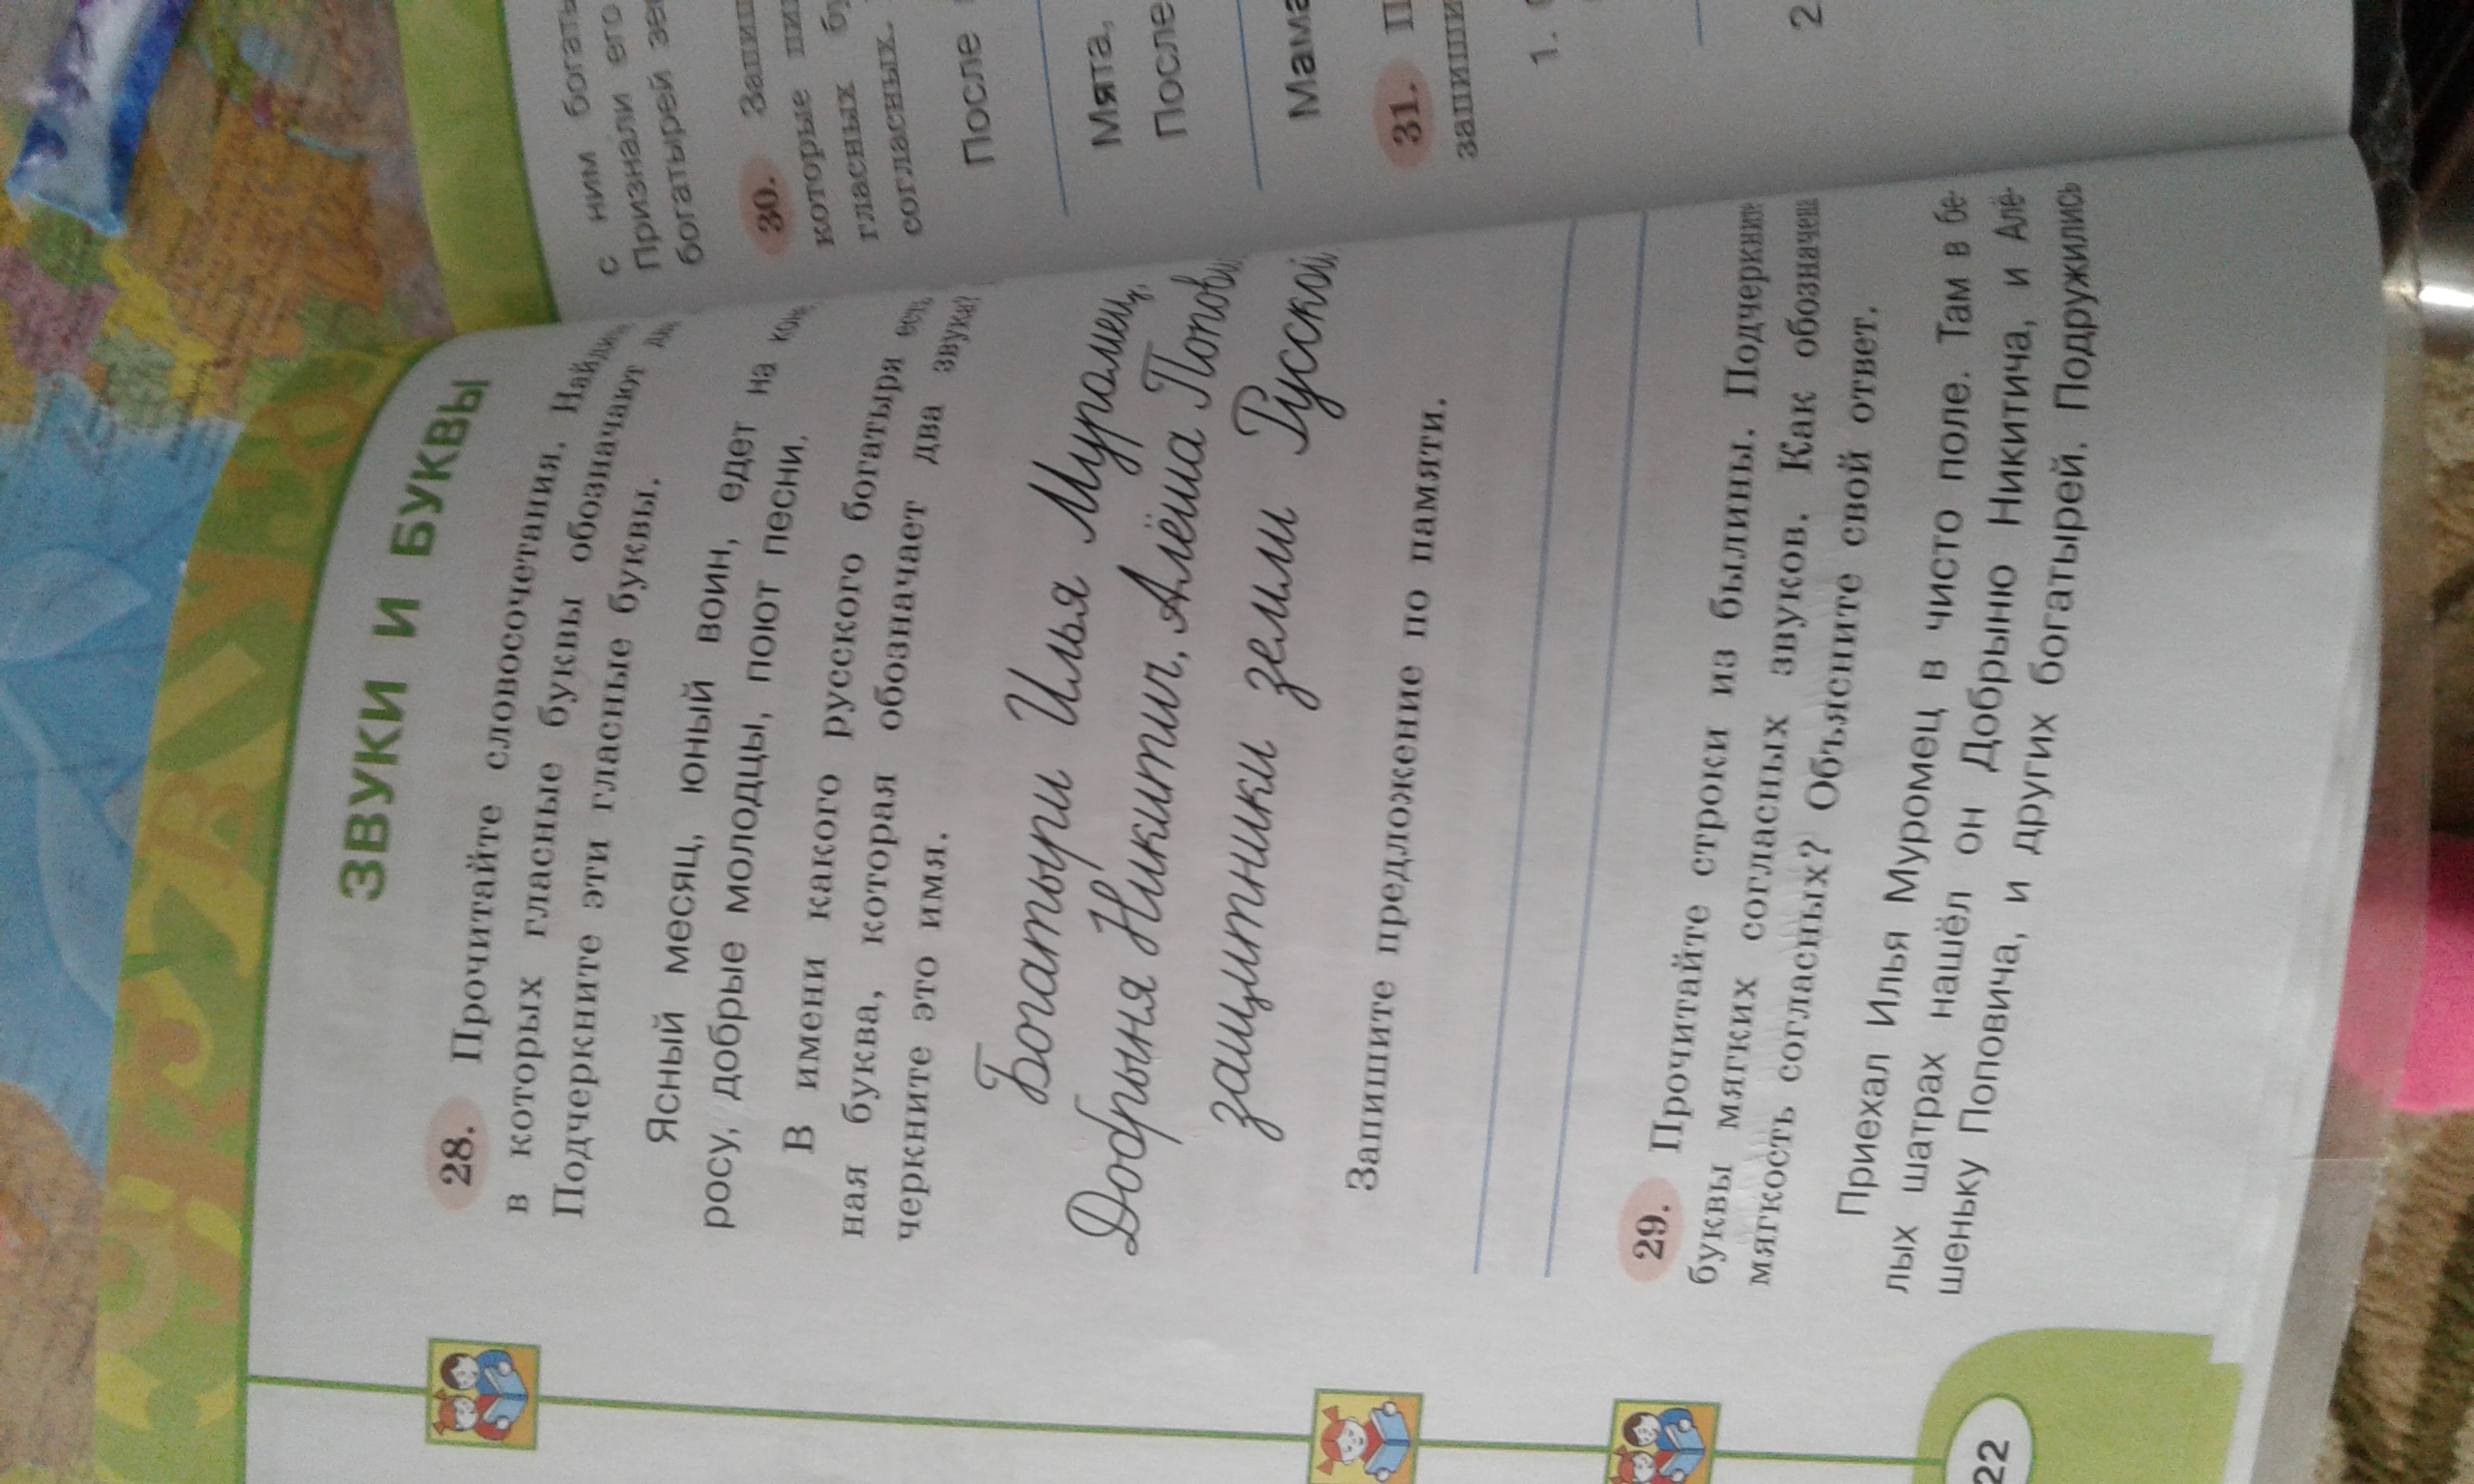 ЗВУКИ И БУКВЫ
28. Прочитайте словосочетания. Найдите
в которых гласные буквы обозначают два
Подчеркните эти гласные буквы.
Ясный месяц, юный воин, едет на коне,
росу, добрые молодцы, поют песни.
В имени какого русского богатыря есть
ная буква, которая обозначает два звука?
черкните это имя.
Богатыри Илья Муромец,
Добрыня Никитич, Алёша Попови
защитники земли Русской
Запишите предложение по памяти.
29. Прочитайте строки из былины. Подчеркните
буквы мягких согласных звуков. Как обозначена
мягкость согласных? Объясните свой ответ.
Приехал Илья Муромец в чисто поле. Там в бе-
лых шатрах нашёл он Добрыню Никитича, и Алё-
шеньку Поповича, и других богатырей. Подружились
22
с ним богаты
Признали его
богатырей зем
30. Запиш
которые
гласных бу
согласных.
После
Мята,
После
Мама
31. П
запиши
1.
2